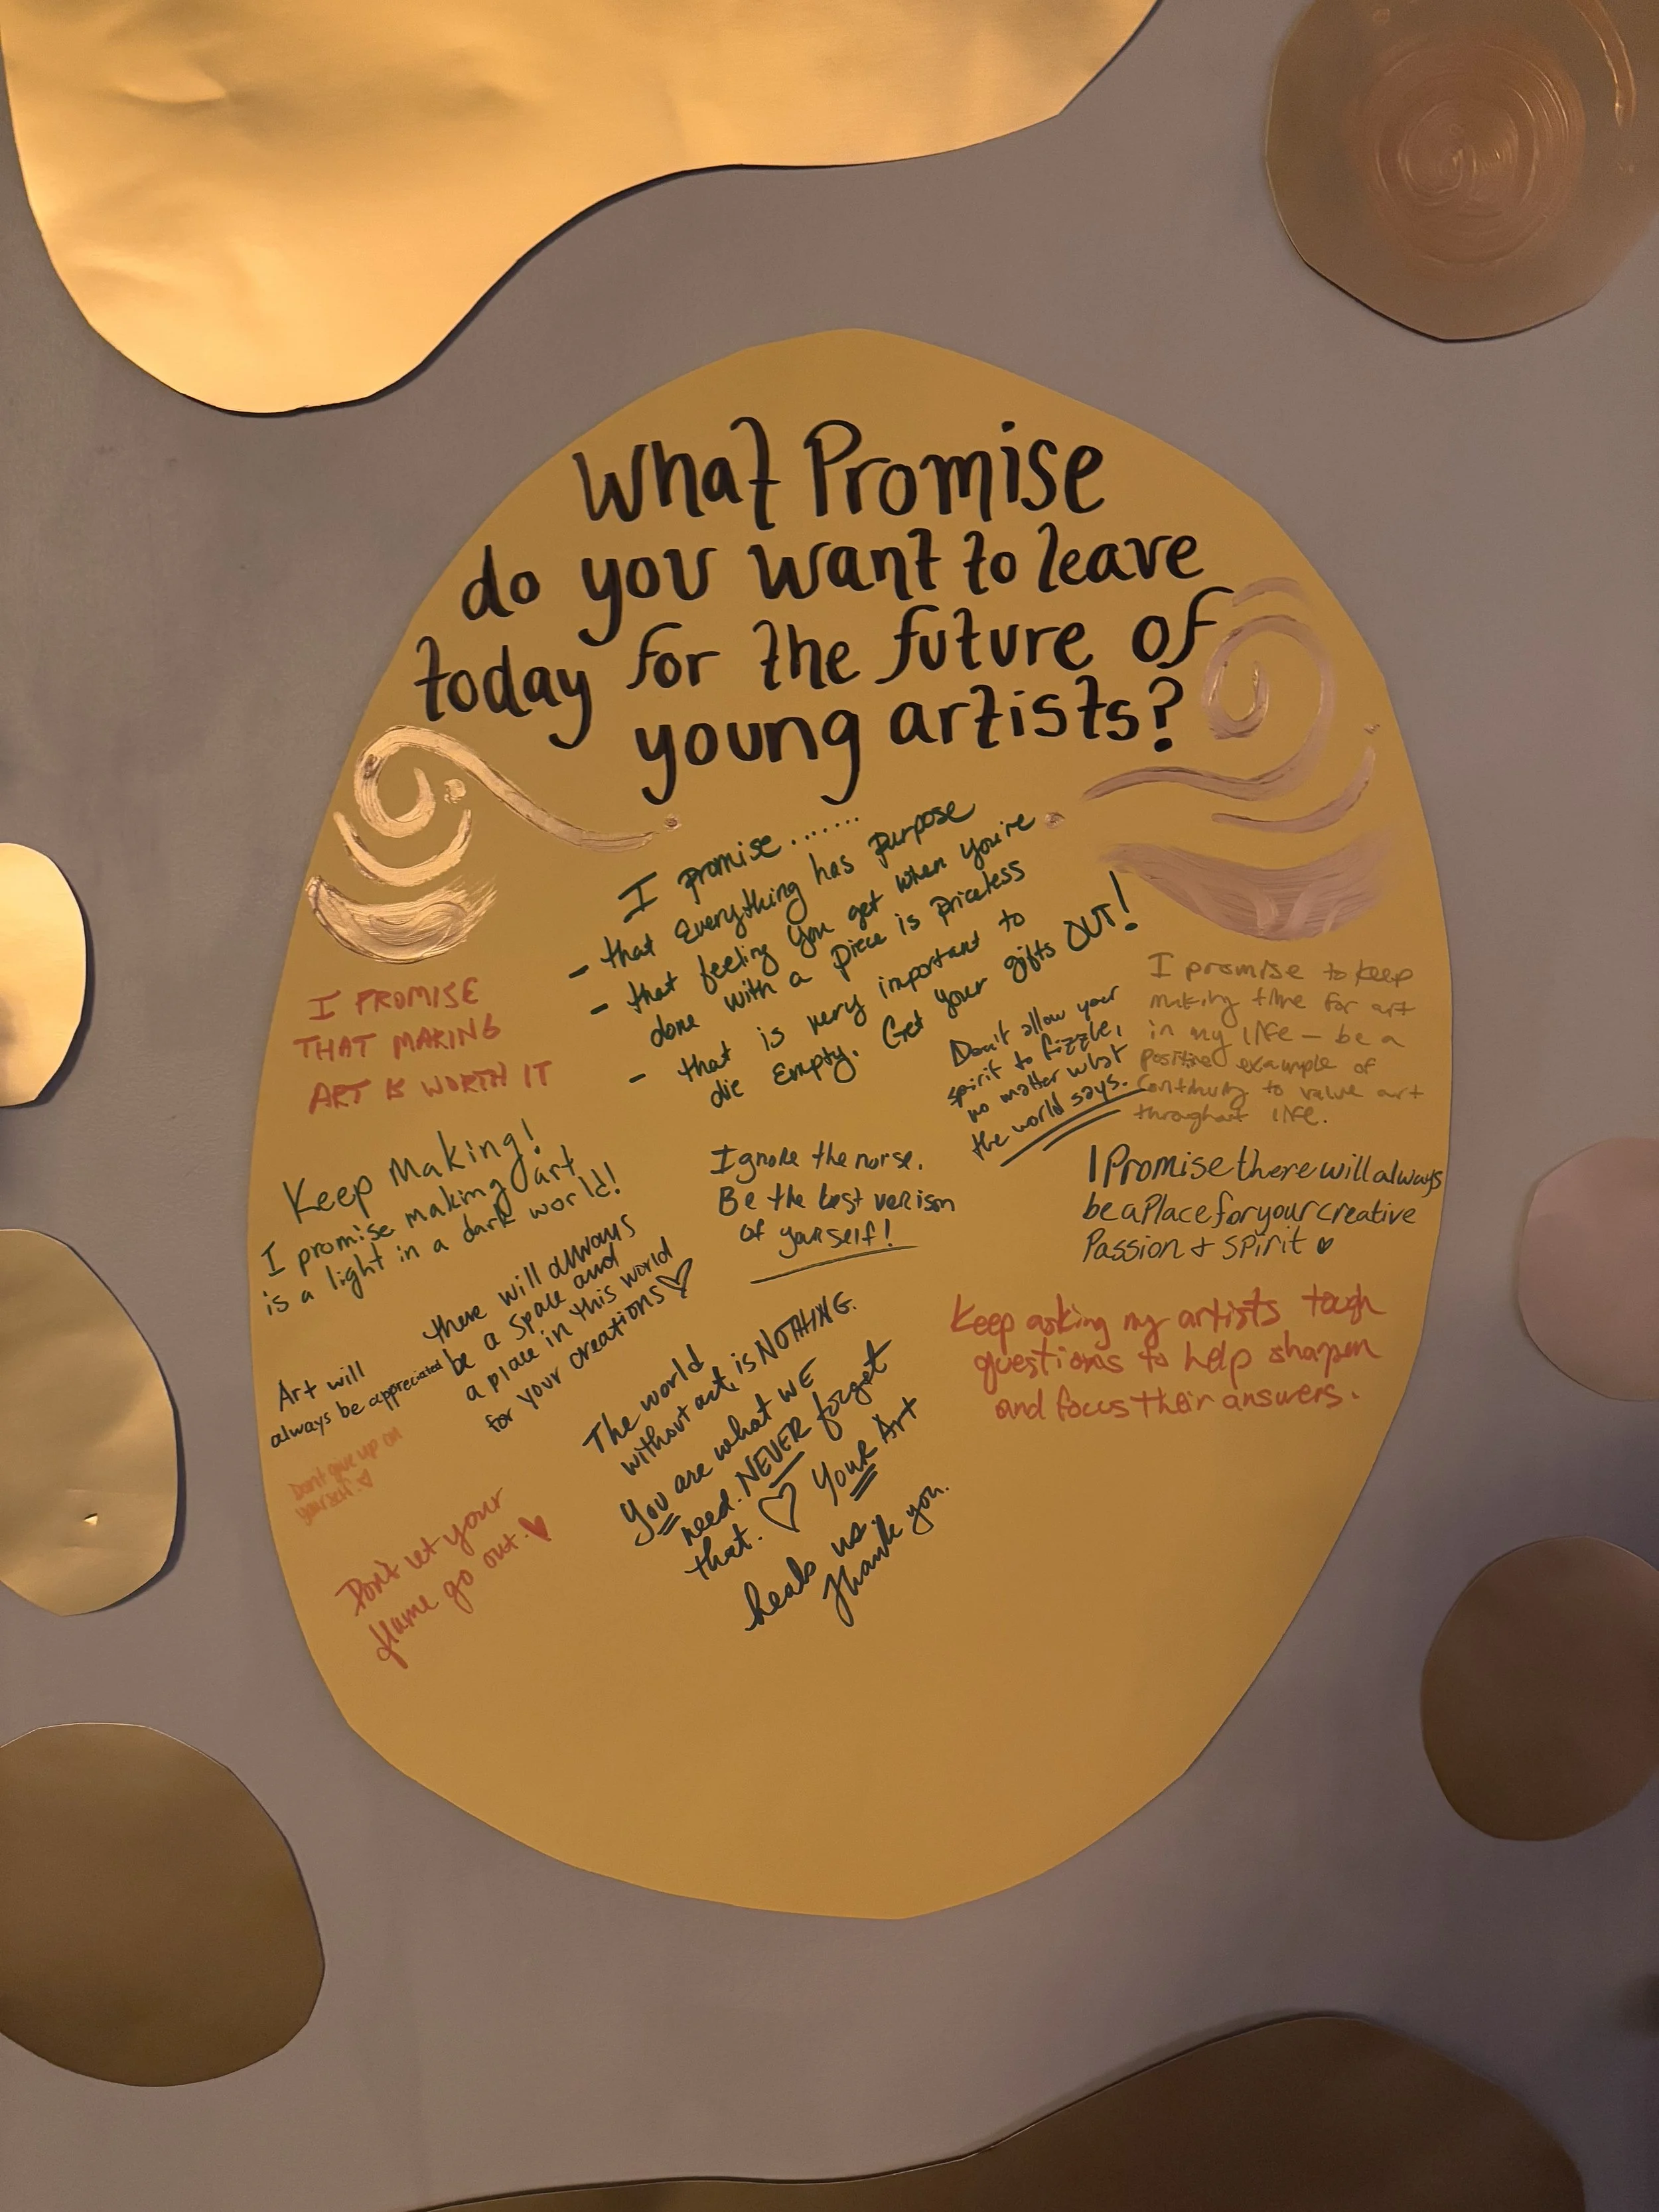 What Promise
do you want to leave
today for the future of
young artists?
I promise.......
- that Everything has Purpose
- that feeling you get when you're
done with a piece is priceless
- that is very important to
die Empty. Get your gifts OUT!
I PROMISE
THAT MAKING
ART IS WORTH IT
Don't allow your
spirit to fizzle,
no matter what
the world says.
I promise to keep
making time for art
in my life - be a
positive example of
continuing to value art
throughout life.
Keep Making!
I promise making art
is a light in a dark world!
Ignore the norse.
Be the best verison
of yourself!
I Promise there will always
be a Place for your creative
Passion + Spirit ♥
there will always
be a space and
a place in this world
for your creations ♡
Art will
always be appreciated
Keep asking my artists tough
questions to help sharpen
and focus their answers.
The world
without art, is NOTHING.
You are what WE
need. NEVER forget
that. ♡ Your Art
heals us.
Thank you.
Don't give up on
yourself. ♡
Don't let your
flame go out. ♥